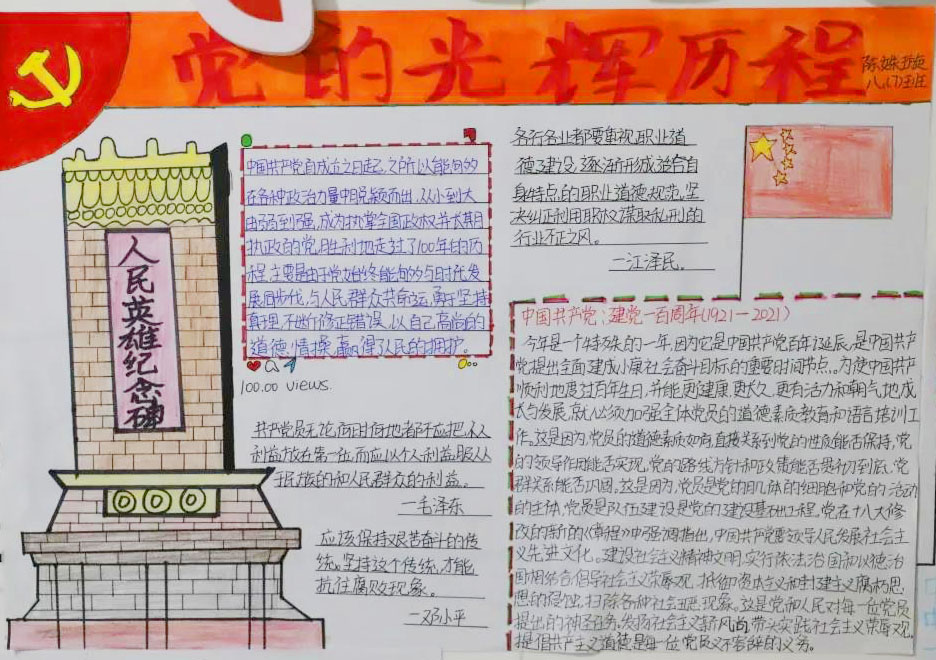 党的光辉历程
八、(7)班
人民英雄纪念碑
中国共产党自成立之日起,之所以能够
在各种政治力量中脱颖而出,从小到大
由弱到强,成为执掌全国政权并长期
执政的党,胜利地走过了100年的历
程,主要是由于党始终能够与时代发
展同步伐,与人民群众共命运,勇于坚持
真理,不断修正错误,以自己高尚的
道德、情操,赢得了人民的拥护。
100.00 views.
共产党员无论何时何地都不应把个人
利益放在第一位,而应以个人利益服从
于民族的和人民群众的利益。
—毛泽东
应该保持艰苦奋斗的传
统,坚持这个传统,才能
抗住腐败现象。
—邓小平
各行各业都要重视职业道
德建设,逐渐形成适合自
身特点的职业道德规范,坚
决纠正利用职权谋取私利的
行业不正之风。
—江泽民
中国共产党:建党一百周年(1921—2021)
今年是一个特殊的一年,因为它是中国共产党百年诞辰,是中国共产
党提出全面建成小康社会奋斗目标的重要时间节点。为使中国共产党
顺利地度过百年生日,并能更健康、更长久、更有活力和朝气地成
长与发展,就必须加强全体党员的道德素质教育和语言培训工
作。这是因为,党员的道德素质如何直接关系到党的性质能否保持,党
的领导作用能否实现,党的路线方针和政策能否贯彻到底,党
群关系能否巩固。这是因为,党员是党的肌体的细胞和党的活动
的主体,党员是队伍建设是党的建设基础工程。党在十八大修
改的新的《章程》中强调指出,中国共产党要领导人民发展社会主
义先进文化。建设社会主义精神文明,实行依法治国和以德治
国相结合,倡导社会主义荣辱观,抵御资本主义和封建主义腐朽思
想的侵蚀,扫除各种社会丑恶现象。这是党和人民对每一位党员
提出的神圣任务,发扬社会主义新风尚,带头实践社会主义荣辱观,
提倡共产主义道德是每一位党员义不容辞的义务。